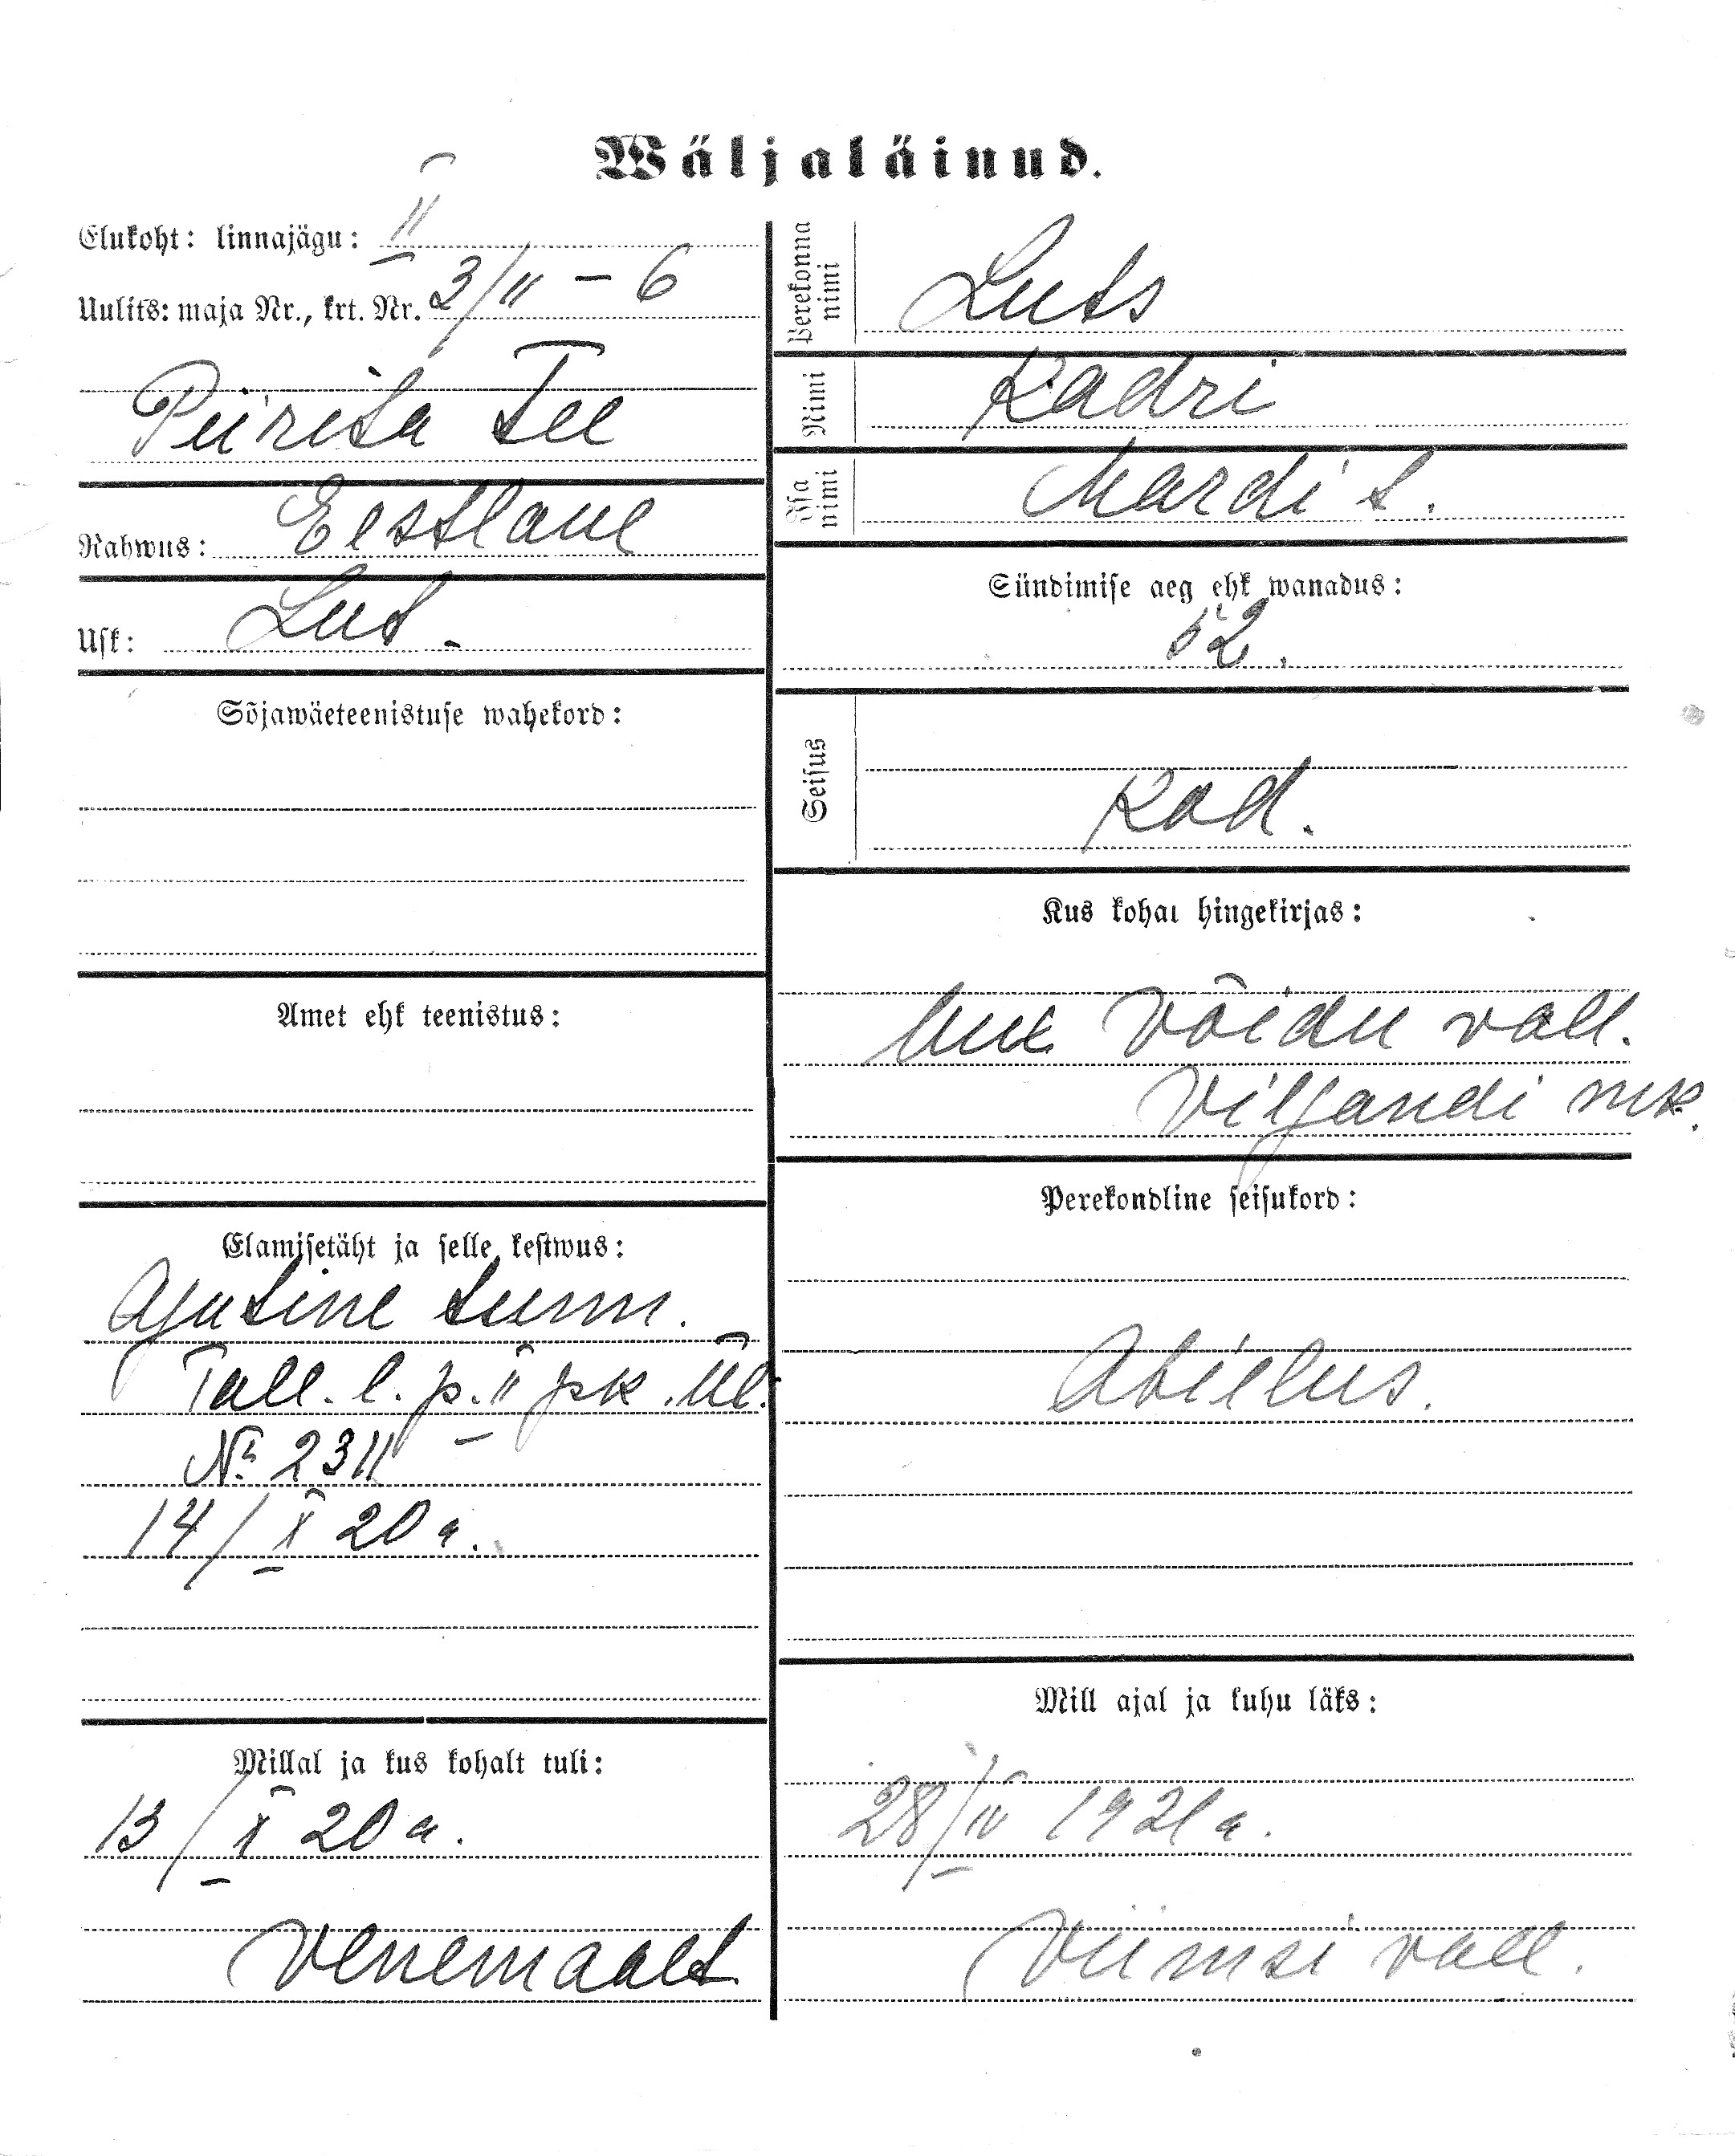 Wäljaläinud.
Elukoht: linnajägu: II
Uulits: maja Nr., krt. Nr. 3/11 – 6
Piirita Tee
Rahwus: Eestlane
Usk: Lut.
Sõjawäeteenistuse wahekord:
Amet ehk teenistus:
Elamisetäht ja selle kestwus:
Ajutine tunn.
Tall. l. p. II pk. ül.
№ 2311
14/X 20 a.
Millal ja kus kohalt tuli:
13/X 20 a.
Venemaalt
Perekonna nimi Luts
Nimi Kadri
Isa nimi Mardi t.
Sündimise aeg ehk wanadus:
52.
Seisus
Kod.
Kus kohal hingekirjas:
Võidu vall.
Viljandi mk.
Perekondline seisukord:
Abielus.
Mill ajal ja kuhu läks:
28/IV 1921 a.
Viimsi vall.